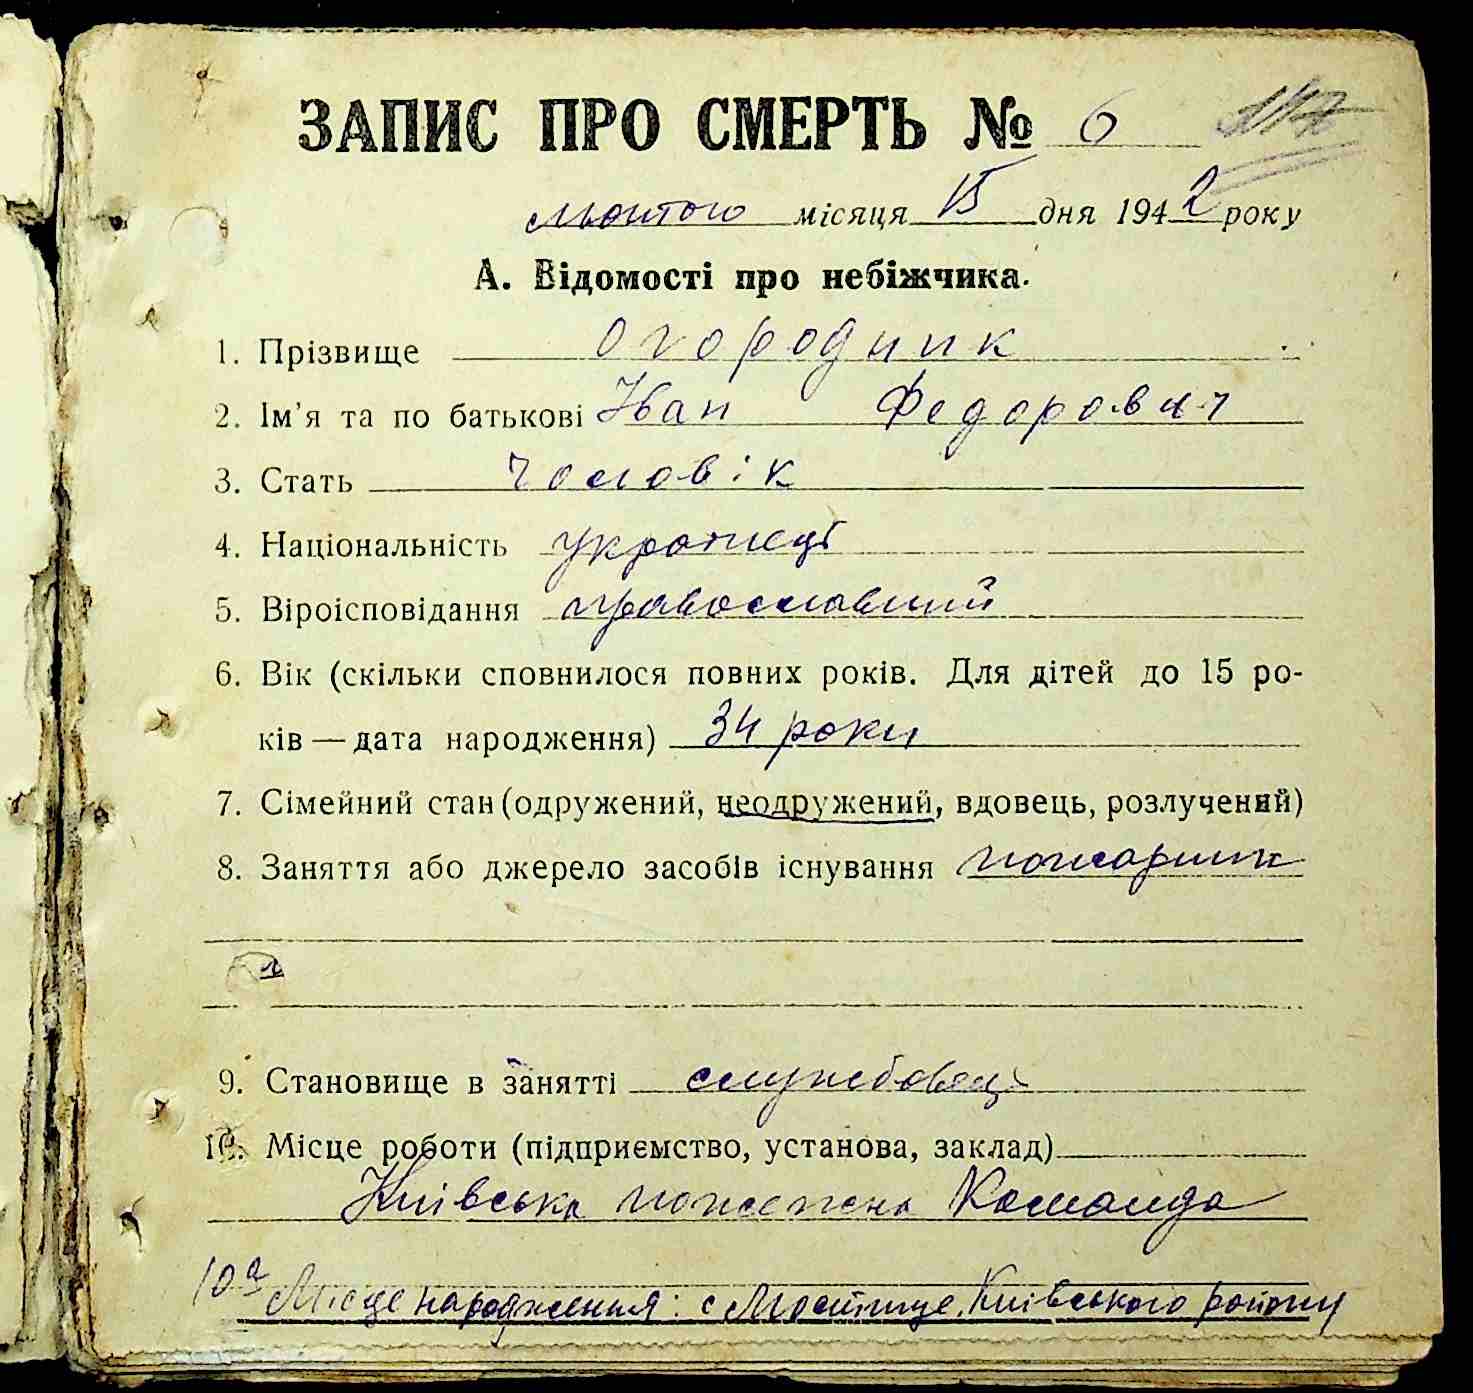 ЗАПИС ПРО СМЕРТЬ № 6 117
лютого місяця 15 дня 1942 року
А. Відомості про небіжчика.
1. Прізвище Огородник
2. Ім'я та по батькові Іван Федорович
3. Стать чоловік
4. Національність українець
5. Віроісповідання православний
6. Вік (скільки сповнилося повних років. Для дітей до 15 ро-
ків — дата народження) 34 роки
7. Сімейний стан (одружений, неодружений, вдовець, розлучений)
8. Заняття або джерело засобів існування пожарник
9. Становище в занятті службовець
10. Місце роботи (підприємство, установа, заклад)
Київська пожежна Команда
10а Місце народження: с Мостище Київського району